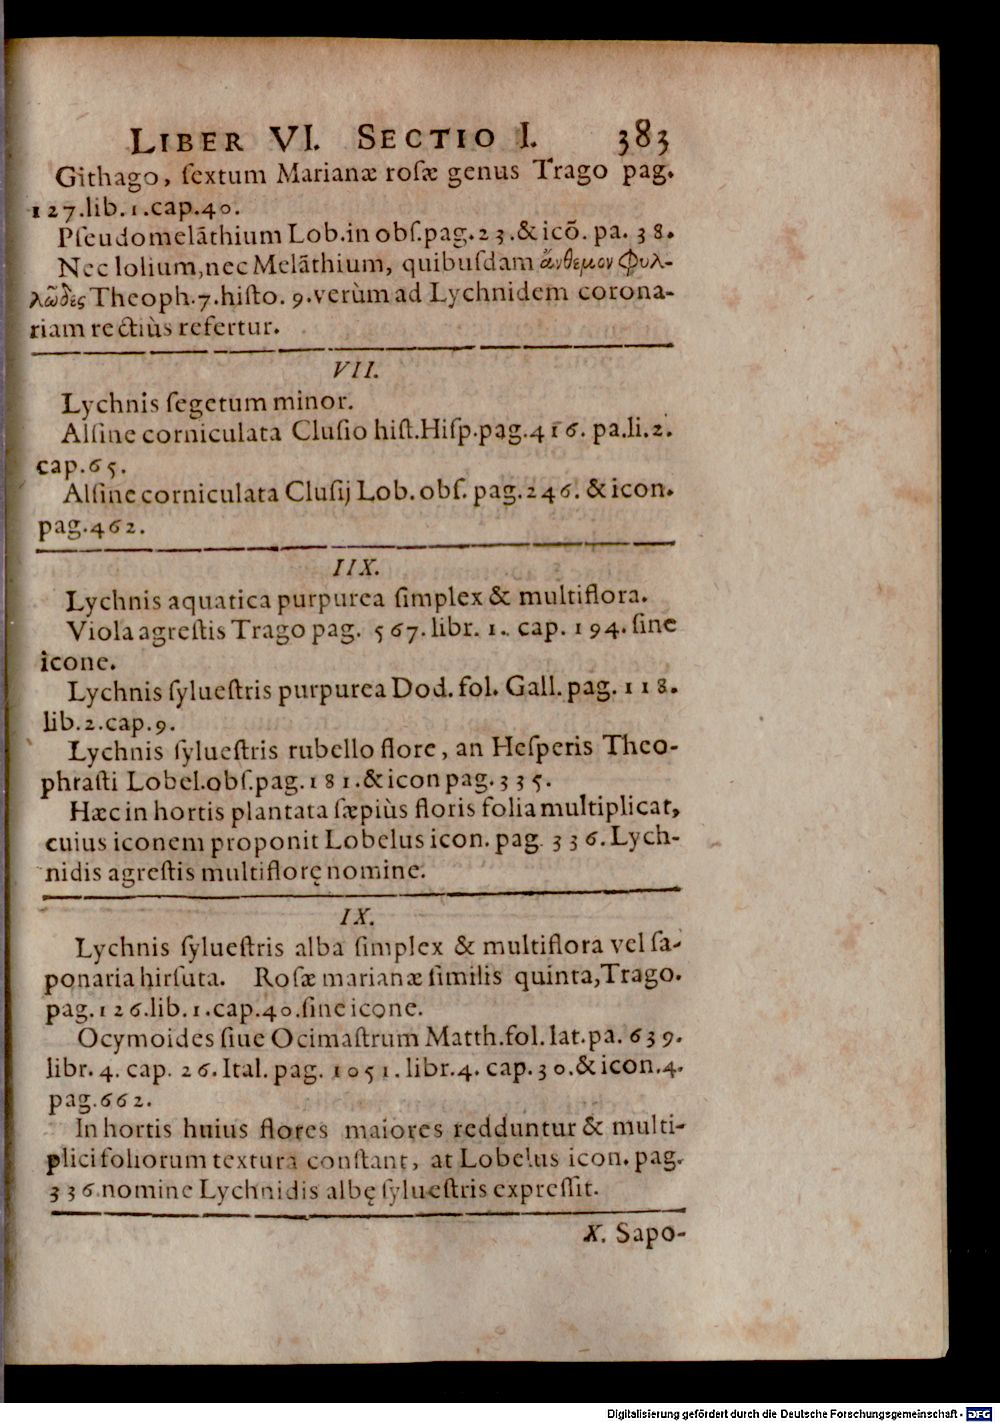 LIBER VI. SECTIO I. 383
Githago, ſextum Marianæ roſæ genus Trago pag.
127.lib.1.cap.40.
Pſeudomelāthium Lob.in obſ.pag.23.& icō. pa. 38.
Nec lolium,nec Melāthium, quibuſdam ἄνθεμον Φυλ-
λῶδες Theoph.7.hiſto. 9.verùm ad Lychnidem corona-
riam rectiùs refertur.
VII.
Lychnis ſegetum minor.
Alſine corniculata Cluſio hiſt.Hiſp.pag.416. pa.li.2.
cap.65.
Alſine corniculata Cluſij Lob. obſ. pag.246. & icon.
pag.462.
IIX.
Lychnis aquatica purpurea ſimplex & multiflora.
Viola agreſtis Trago pag. 567. libr. 1. cap. 194. ſine
icone.
Lychnis ſylueſtris purpurea Dod. fol. Gall. pag. 118.
lib.2.cap.9.
Lychnis ſylueſtris rubello flore, an Heſperis Theo-
phraſti Lobel.obſ.pag.181.& icon pag.335.
Hæc in hortis plantata ſæpiùs floris folia multiplicat,
cuius iconem proponit Lobelus icon. pag. 336. Lych-
nidis agreſtis multiflorę nomine.
IX.
Lychnis ſylueſtris alba ſimplex & multiflora vel ſa-
ponaria hirſuta. Roſæ marianæ ſimilis quinta,Trago.
pag.126.lib.1.cap.40.ſine icone.
Ocymoides ſiue Ocimaſtrum Matth.fol.lat.pa. 639.
libr. 4. cap. 26. Ital. pag. 1051. libr.4. cap.30.& icon.4.
pag.662.
In hortis huius flores maiores redduntur & multi-
plici foliorum textura conſtant, at Lobelus icon. pag.
336.nomine Lychnidis albę ſylueſtris expreſſit.
X. Sapo-
Digitalisierung gefördert durch die Deutsche Forschungsgemeinschaft - DFG